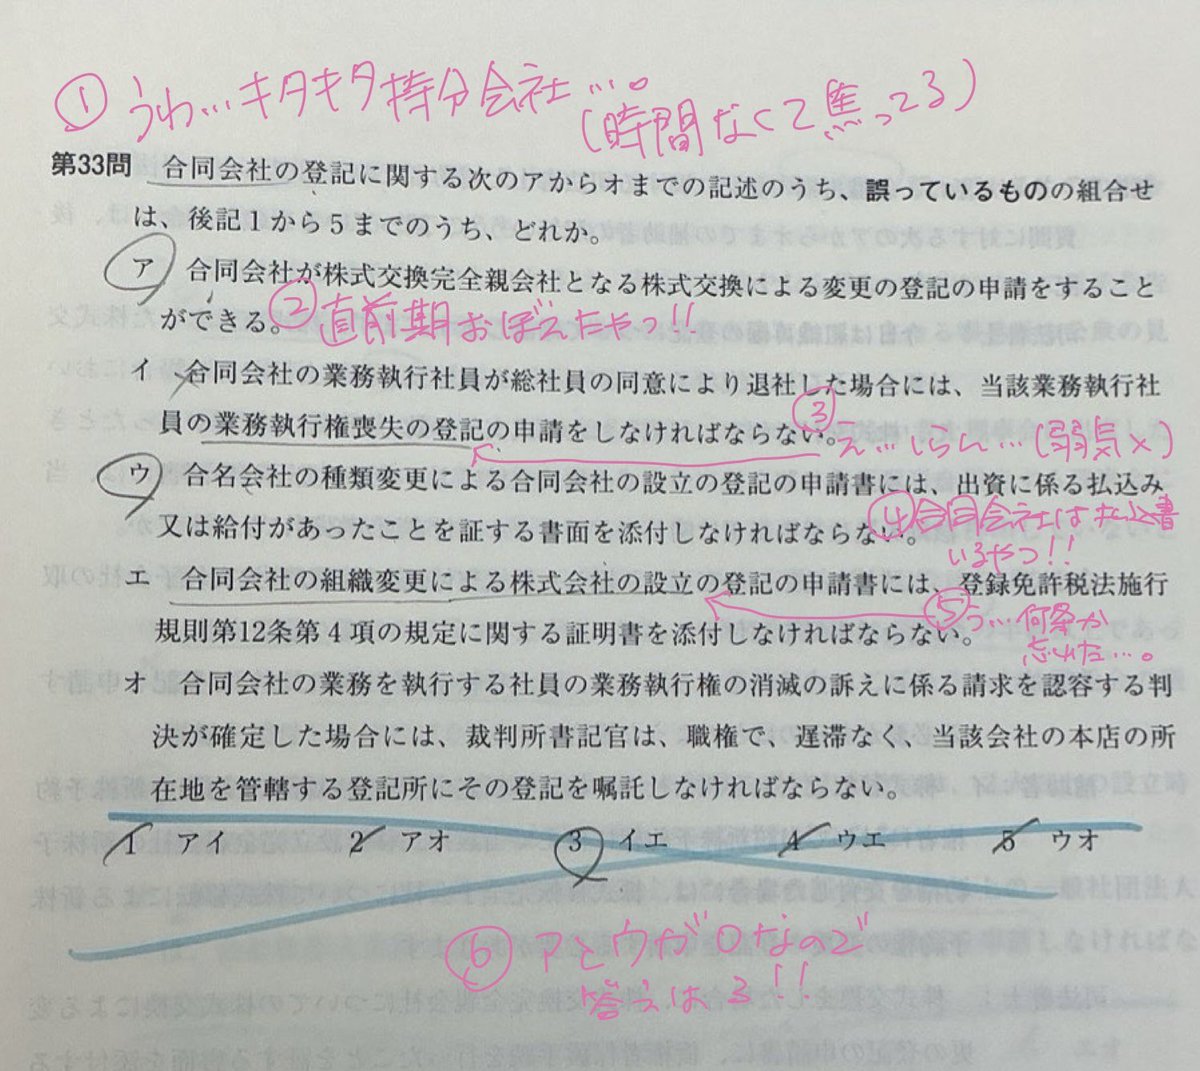 ① うわ…キタキタ持分会社…。
(時間なくて焦ってる)
第33問 合同会社の登記に関する次のアからオまでの記述のうち、誤っているものの組合せ
は、後記1から5までのうち、どれか。
ア 合同会社が株式交換完全親会社となる株式交換による変更の登記の申請をすること
ができる。
② 直前期おぼえたやつ!!
イ 合同会社の業務執行社員が総社員の同意により退社した場合には、当該業務執行社
員の業務執行権喪失の登記の申請をしなければならない。
③ え…しらん…(弱気×)
ウ 合名会社の種類変更による合同会社の設立の登記の申請書には、出資に係る払込み
又は給付があったことを証する書面を添付しなければならない。
④合同会社は払込書
いるやつ!!
エ 合同会社の組織変更による株式会社の設立の登記の申請書には、登録免許税法施行
規則第12条第4項の規定に関する証明書を添付しなければならない。
⑤う…何条か
忘れた…。
オ 合同会社の業務を執行する社員の業務執行権の消滅の訴えに係る請求を認容する判
決が確定した場合には、裁判所書記官は、職権で、遅滞なく、当該会社の本店の所
在地を管轄する登記所にその登記を嘱託しなければならない。
1 アイ 2 アオ 3 イエ 4 ウエ 5 ウオ
⑥ アとウが○なので
答えは3!!